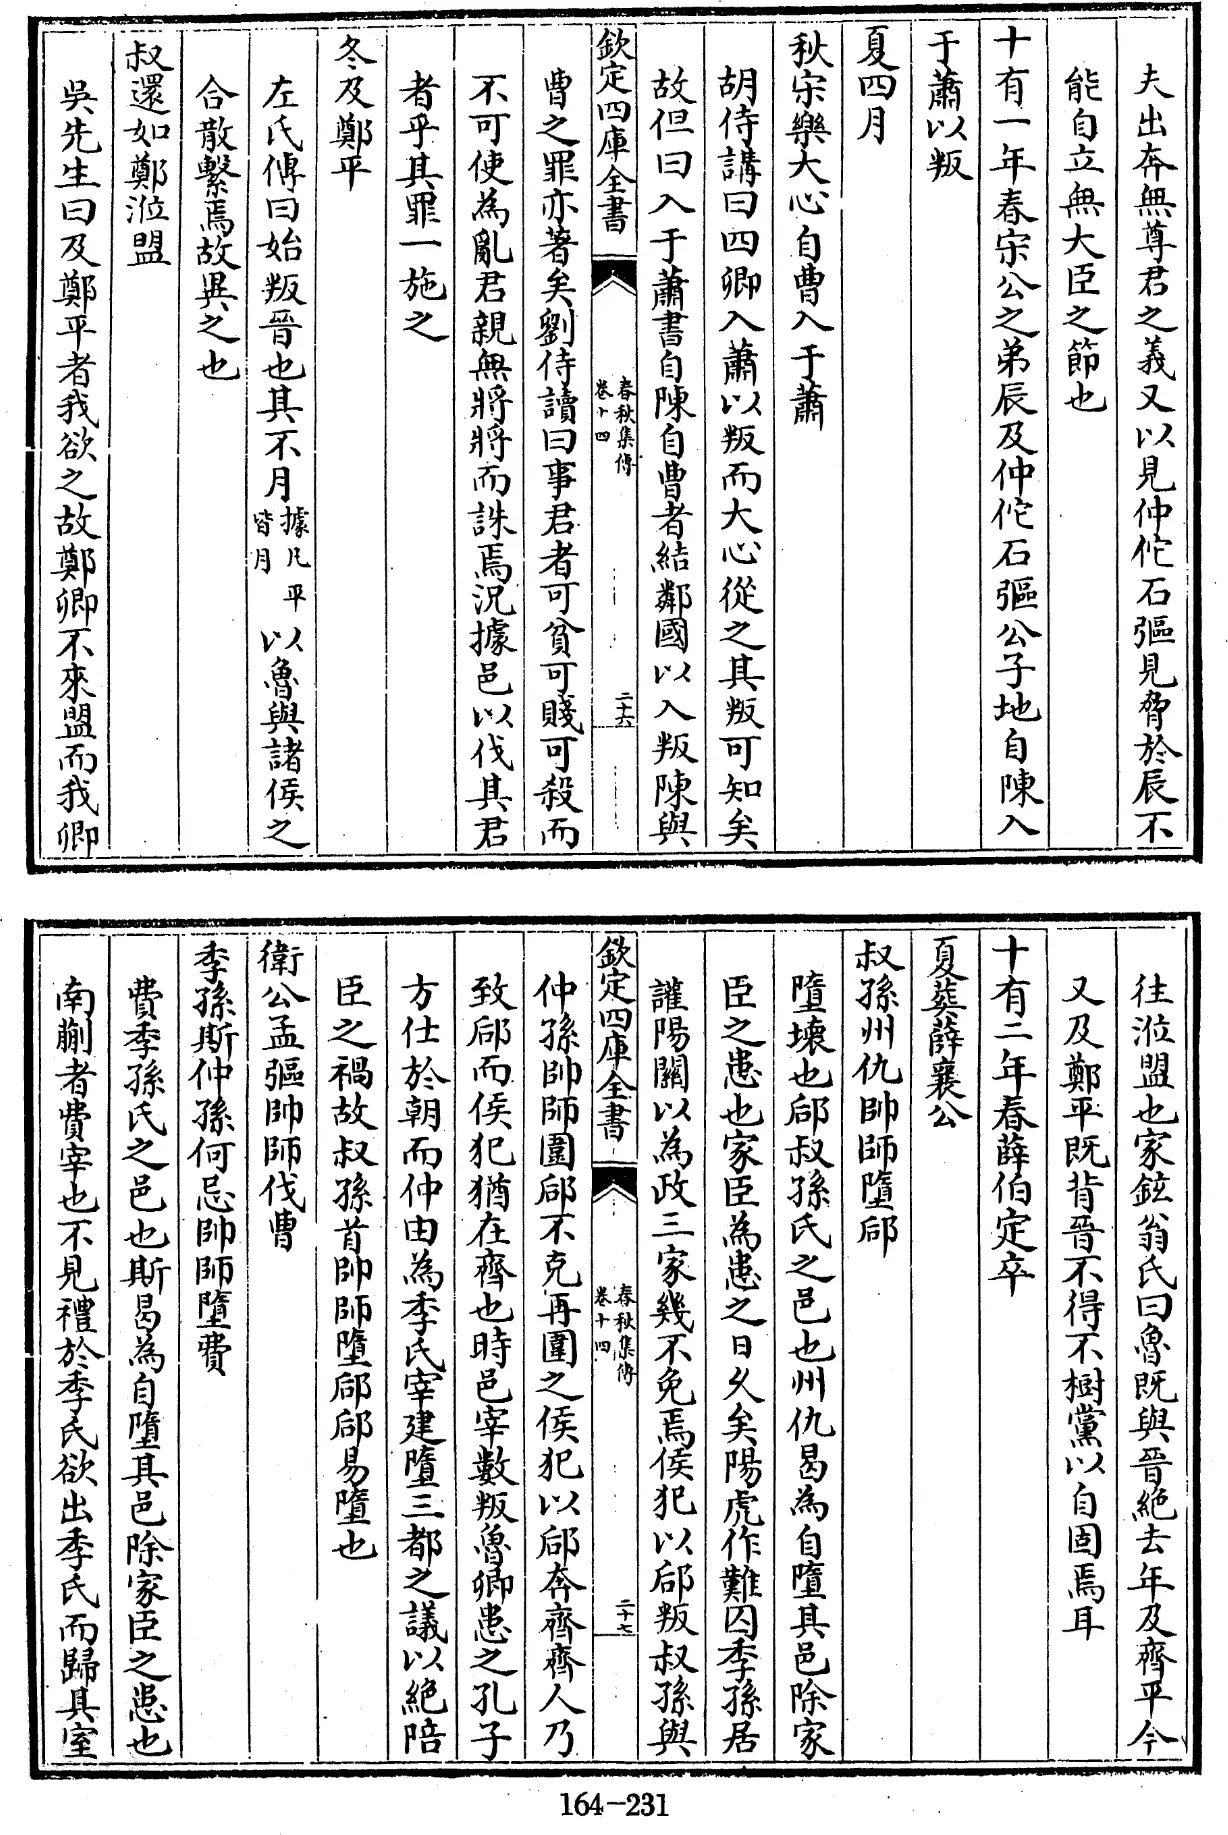 夫出奔無尊君之義又以見仲佗石彄見脅於辰不
能自立無大臣之節也
十有一年春宋公之弟辰及仲佗石彄公子地自陳入
于蕭以叛
夏四月
秋宋樂大心自曹入于蕭
胡侍講曰四卿入蕭以叛而大心從之其叛可知矣
故但曰入于蕭書自陳自曹者結鄰國以入叛陳與
欽定四庫全書
春秋集傳
卷十四
二十六
曹之罪亦著矣劉侍讀曰事君者可貧可賤可殺而
不可使為亂君親無將將而誅焉況據邑以伐其君
者乎其罪一施之
冬及鄭平
左氏傳曰始叛晉也其不月據凡平皆月以魯與諸侯之
合散繫焉故異之也
叔還如鄭涖盟
吳先生曰及鄭平者我欲之故鄭卿不來盟而我卿
往涖盟也家鉉翁氏曰魯既與晉絶去年及齊平今
又及鄭平既背晉不得不樹黨以自固焉耳
十有二年春薛伯定卒
夏葬薛襄公
叔孫州仇帥師墮郈
墮壞也郈叔孫氏之邑也州仇曷為自墮其邑除家
臣之患也家臣為患之日久矣陽虎作難囚季孫居
讙陽關以為政三家幾不免焉侯犯以郈叛叔孫與
欽定四庫全書
春秋集傳
卷十四
二十七
仲孫帥師圍郈不克再圍之侯犯以郈奔齊齊人乃
致郈而侯犯猶在齊也時邑宰數叛魯卿患之孔子
方仕於朝而仲由為季氏宰建墮三都之議以絶陪
臣之禍故叔孫首帥師墮郈郈易墮也
衛公孟彄帥師伐曹
季孫斯仲孫何忌帥師墮費
費季孫氏之邑也斯曷為自墮其邑除家臣之患也
南蒯者費宰也不見禮於季氏欲出季氏而歸其室
164-231